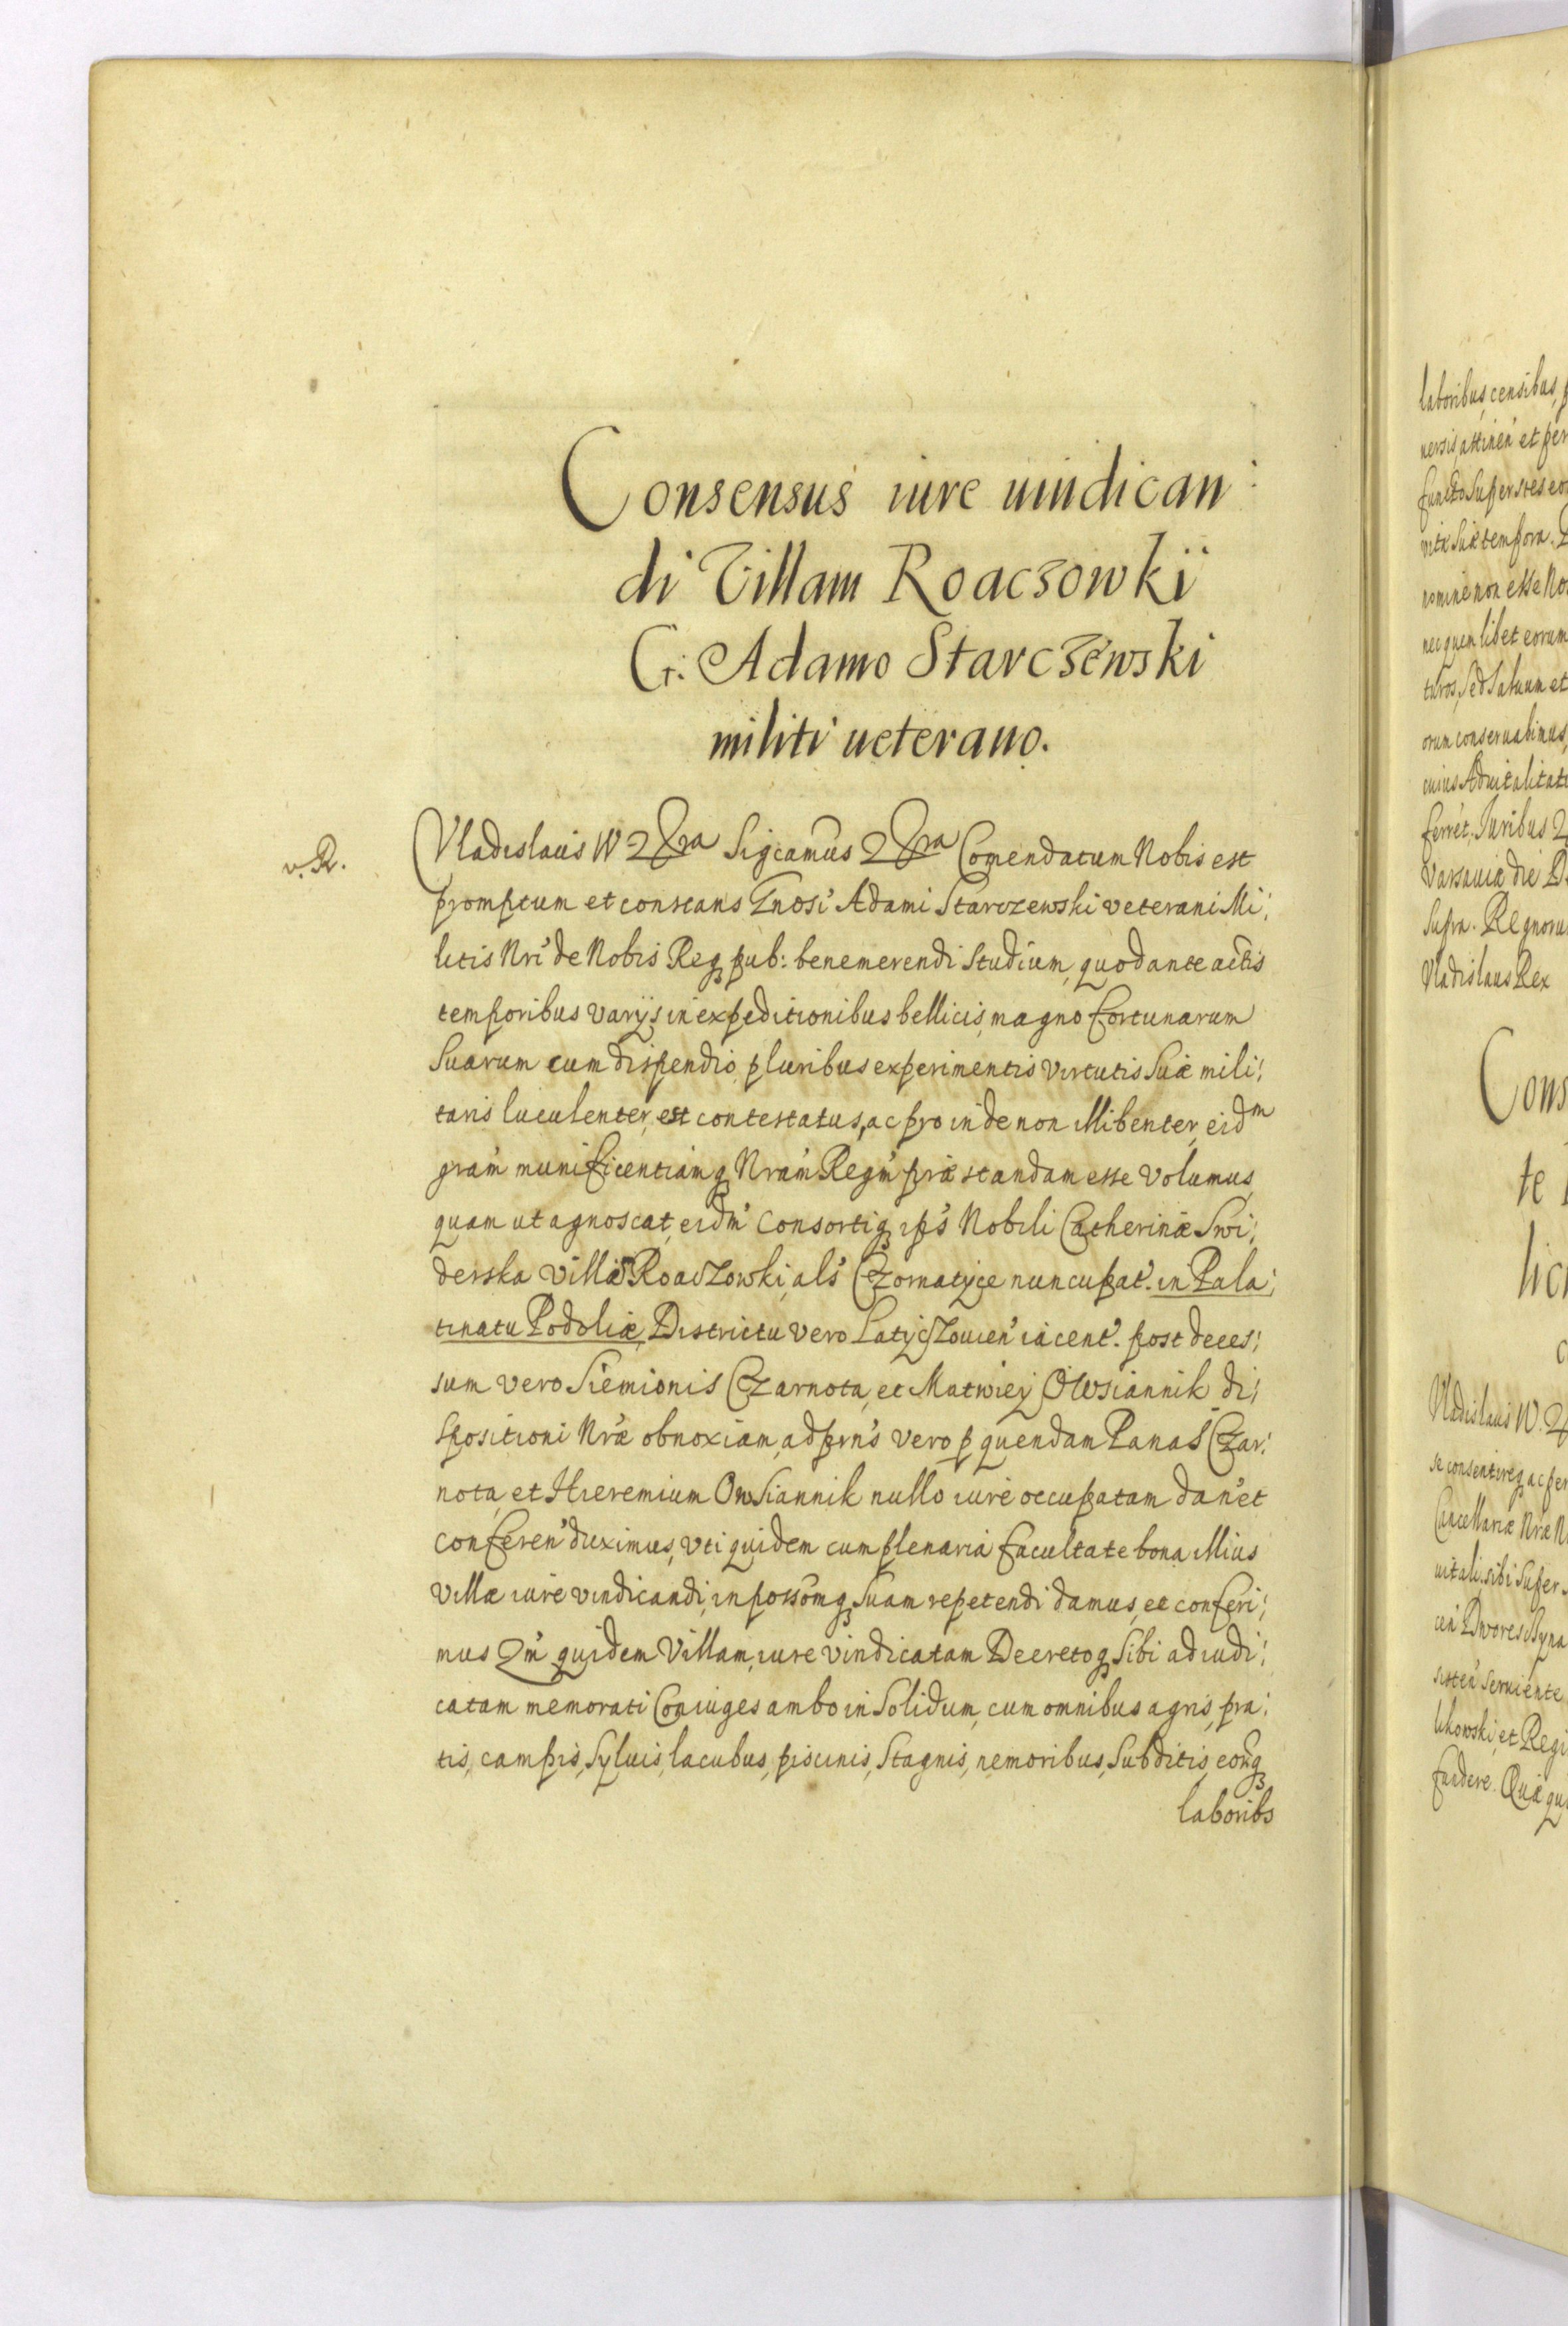 Consensus iure uindican:
di Villam Roaczowkÿ
G: Adamo Starczewski
militi ueterano.
v. R.
Vladislaus IV &ra Sigcamus &ra Comendatum Nobis est
promptum et constans Gnosi Adami Starczewski veterani Mi:
litis Nri de Nobis Reqꝫ pub: benemerendi studium, quod ante actis
temporibus varijs in expeditionibus bellicis, magno fortunarum
suarum cum dispendio, pluribus experimentis virtutis suæ mili:
taris luculenter, est contestatus, ac pro inde non illibenter, eidm
gram munificentiamqꝫ Nram Regm præstandam esse volumus,
quam ut agnoscat, eidm Consortiqꝫ ips Nobili Catherinæ Swi:
derska villæ Roaczowki, als Czornatyce nuncupat. in Pala:
tinatu Podoliæ, Districtu vero Latyczouien iacent. post deces:
sum vero Siemionis Czarnota, et Matwiey Owsiannik di:
spositioni Nræ obnoxiam, ad prns vero p quendam Panas Czar:
nota, et Hieremium Owsiannik nullo iure occupatam dan et
conferen duximus, uti quidem cum plenaria facultate bona illius
villæ iure vindicandi, in possomqꝫ suam repetendi damus, et conferi:
mus Qm quidem Villam, iure vindicatam Decretoqꝫ sibi adiudi:
catam memorati Coniuges ambo in solidum, cum omnibus agris, pra:
tis, campis, syluis, lacubus, piscinis, stagnis, nemoribus, subditis, eorqꝫ
laboribs
laboribus, censibus,
uersis, attinen et per
functo superstes eor
vitæ suæ tempora.
nomine non esse No
nec quemlibet eorum
turos, sed saluum et
orum conseruabimus,
cuius Aduitalitate
ferret. Iuribus
Varsauiæ die
Supra. Regnoru
Vladislaus Rex
Cons
te
lic
Vladislaus IV.
se consentireqꝫ ac per
Cancellariæ Nræ N
uitali, sibi super
sisten seruiente
likowski, et Regi
fundere. Quæ qui